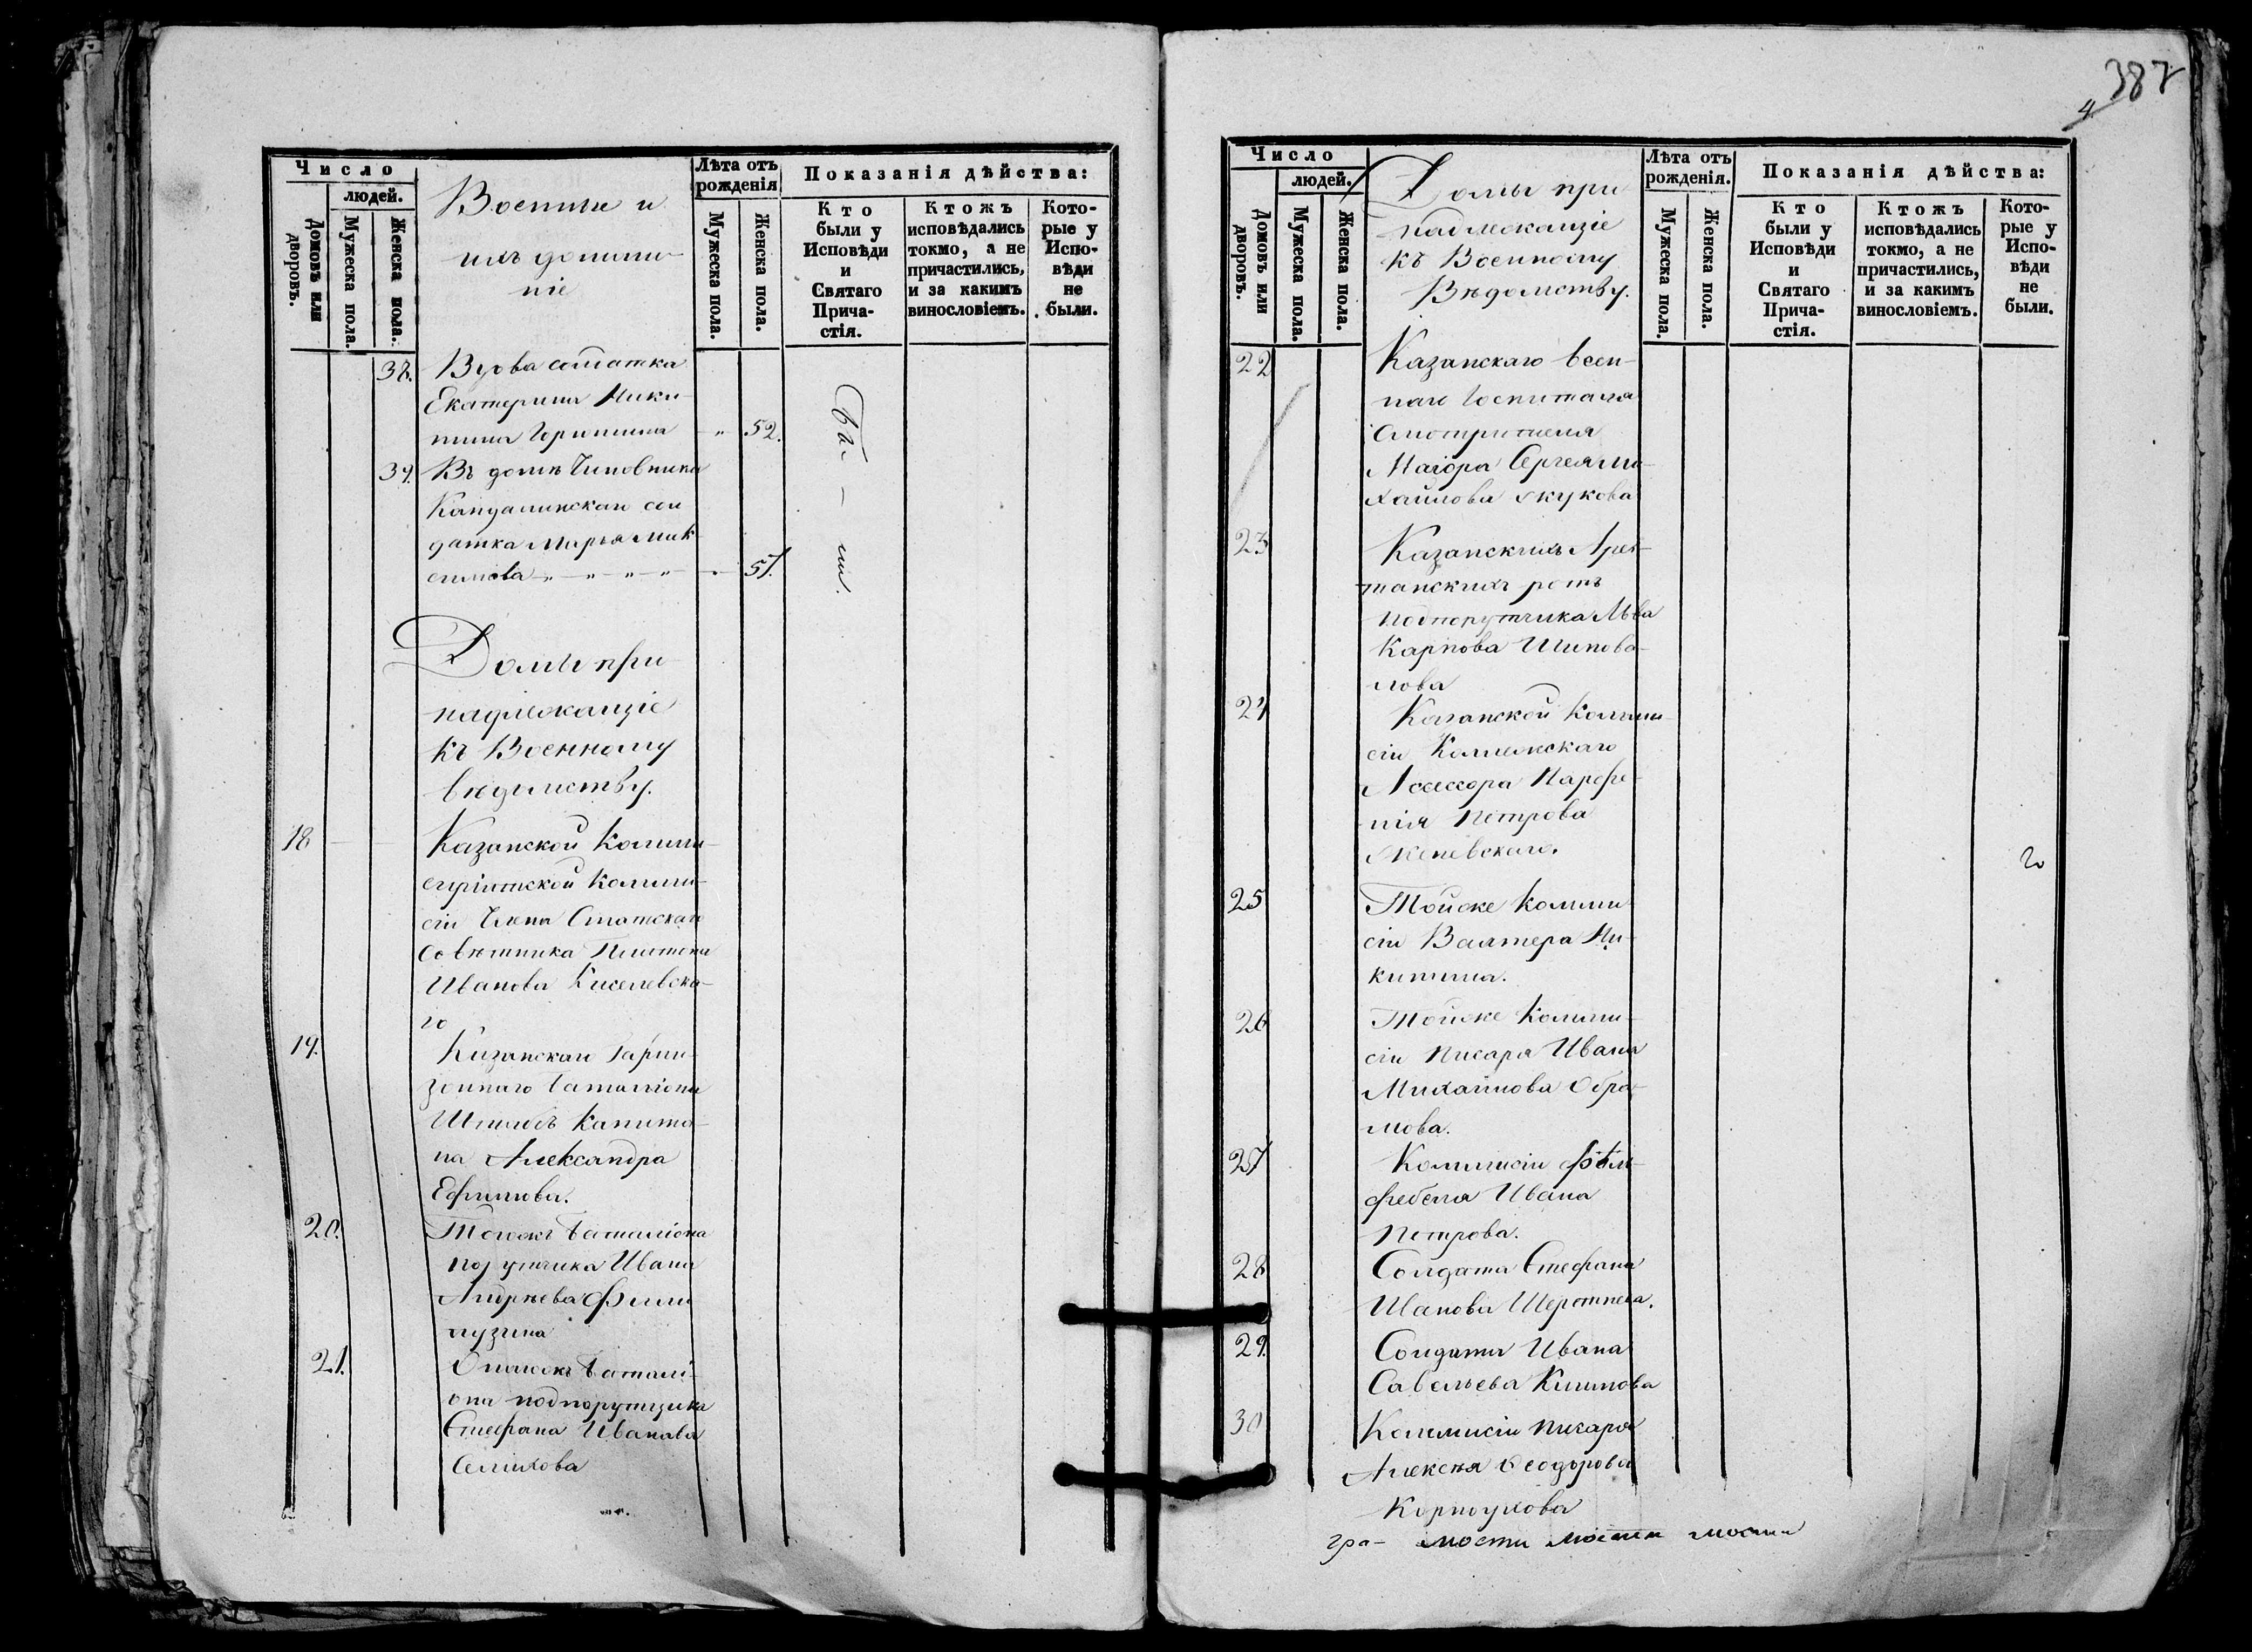 Число
людей.
Домовъ или дворовъ.
Мужеска пола.
Женска пола.
Военныи и
ихъ домаш-
ніе
Лѣта отъ
рожденія
Мужеска пола.
Женска пола.
Показанія дѣйства:
Кто
были у
Исповѣди
и
Святаго
Прича-
стія.
Ктожъ
исповѣдались
токмо, а не
причастились,
и за какимъ
винословіемъ.
Кото-
рые у
Испо-
вѣди
не
были.
38. Вдова солдатка
Екатерина Ники-
тина 52.
39. Въ домѣ Чиновника
Кандалинскаго сол
датка Марья Мак
симова 51.
Бы - ли.
Домы при
надлежащіе
къ Военному
вѣдомству.
18 Казанской Комми-
саріатской Комми-
сіи Члена Статскаго
Совѣтника Платона
Иванова Киселевска-
го
19. Казанскаго Гарни-
зоннаго баталіона
Штабсъ Капита-
на Александра
Ефимова.
20. Тогожъ баталіона
порутчика Ивана
Андрѣева
21. Онагожъ баталі-
она подпорутчика
Стефана Иванова
Селихова
387
4
Число
людей.
Домовъ или дворовъ.
Мужеска пола.
Женска пола.
Домы при
надлежащіе
къ Военному
Вѣдомству.
Лѣта отъ
рожденія.
Мужеска пола.
Женска пола.
Показанія дѣйства:
Кто
были у
Исповѣди
и
Святаго
Прича-
стія.
Ктожъ
исповѣдались
токмо, а не
причастились,
и за какимъ
винословіемъ.
Кото-
рые у
Испо-
вѣди
не
были.
22 Казанскаго воен-
наго Госпиталя
Смотрителя
Маіора Сергея Ми-
хайлова Жукова
23 Казанскихъ Арес-
танскихъ ротъ
Подпорутчика Льва
Карпова Шипова-
лова
24 Казанской Комми-
сіи Коллежскаго
Ассессора Парфе-
нія Петрова
25 Тойже Комми
сіи Валтера Ни-
китина.
26 Тойже Комми-
сіи Писаря Ивана
Михайлова Обра-
мова.
27 Коммисіи Фѣль-
фебеля Ивана
Петрова.
28 Солдата Стефана
29. Солдата Ивана
Савельева Климова
30 Коммисіи писаря
Алексѣя Ѳеодорова
Корноухова
гра- мости мости мости